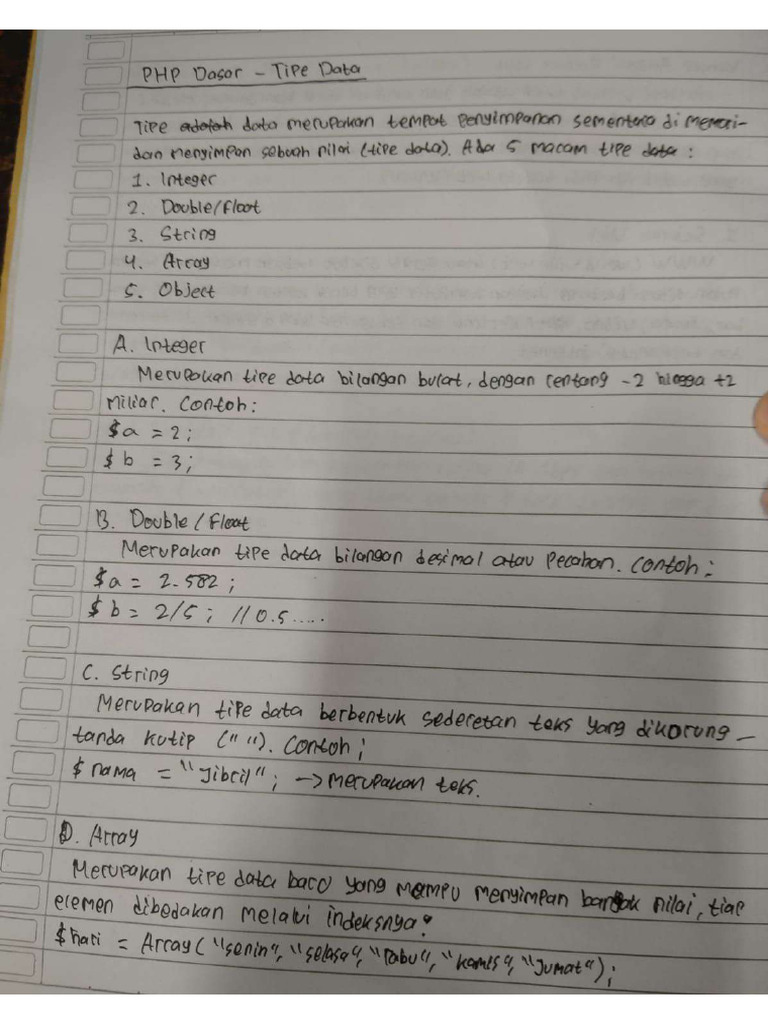 PHP Dasar - Tipe Data
Tipe adalah data merupakan tempat penyimpanan sementara di memori-
dan menyimpan sebuah nilai (tipe data). Ada 5 macam tipe data :
1. Integer
2. Double/Float
3. String
4. Array
5. Object
A. Integer
Merupakan tipe data bilangan bulat, dengan rentang -2 hingga +2
Miliar. Contoh:
$a = 2;
$b = 3;
B. Double / Float
Merupakan tipe data bilangan desimal atau Pecahan. Contoh:
$a = 2.582;
$b = 2/5; //0.5....
C. String
Merupakan tipe data berbentuk sederetan teks yang dikurung -
tanda kutip (" "). Contoh;
$nama = "Jibril"; -> merupakan teks.
D. Array
Merupakan tipe data baru yang mampu menyimpan banyak nilai, tiap
elemen dibedakan melalui indeksnya:
$hari = Array("senin", "selasa", "rabu", "kamis", "Jumat");